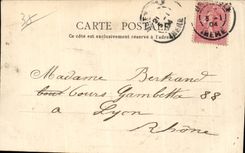 3x
CARTE POSTALE
Ce côté est exclusivement réservé à l'adresse
5 -1
04
ISÈRE
Madame Bertrand
Cours Gambetta 88
a Lyon
Rhône